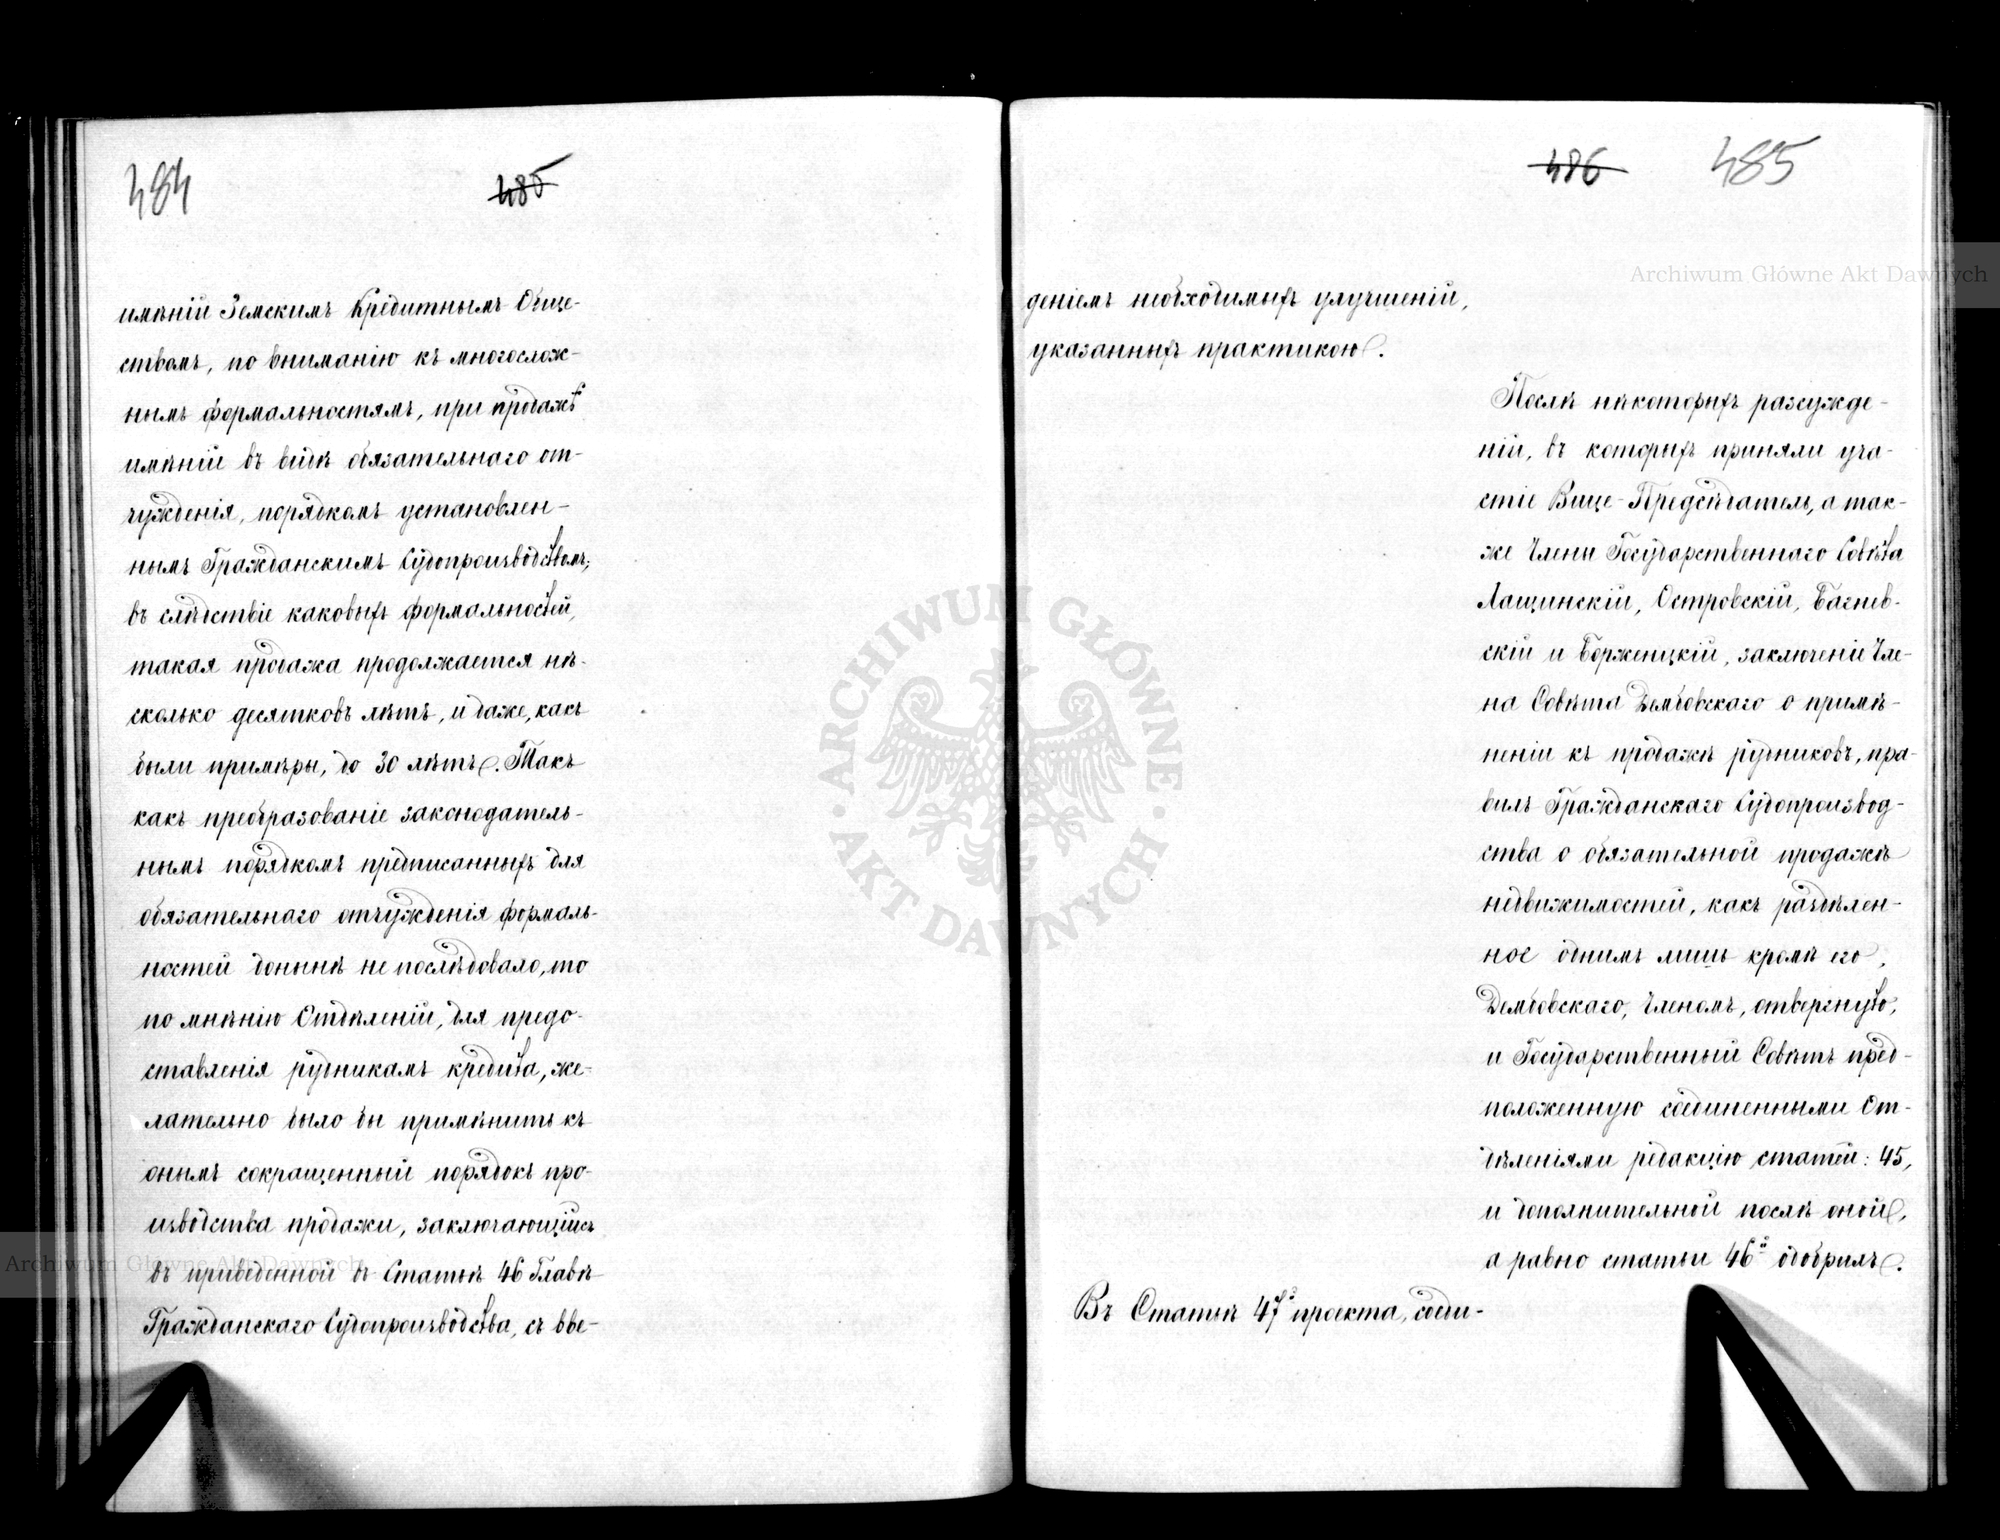 484
485
имѣній Земскимъ Кредитнымъ Обще-
ствомъ, по вниманію къ многослож-
нымъ формальностямъ, при продажѣ
имѣній въ видѣ обязательнаго от-
чужденія, порядкомъ установлен-
нымъ Гражданскимъ Судопроизводствомъ;
въ слѣдствіе каковыхъ формальностей,
такая продажа продолжается нѣ-
сколько десятковъ лѣтъ, и даже, какъ
были примѣры, до 30 лѣтъ. Такъ
какъ преобразованіе законодатель-
нымъ порядкомъ предписанныхъ для
обязательнаго отчужденія формаль-
ностей донынѣ не послѣдовало, то
по мнѣнію Отдѣленій, для предо-
ставленія рудникамъ кредита, же-
лательно было бы примѣнить къ
онымъ сокращенный порядокъ про-
изводства продажи, заключающійся
въ приведенной въ Статьѣ 46 Главѣ
Гражданскаго Судопроизводства, съ вве-
486
485
деніемъ необходимыхъ улучшеній,
указанныхъ практикою.
Послѣ нѣкоторыхъ разсужде-
ній, въ которыхъ приняли уча-
стіе Вице-Предсѣдатель, а так-
же Члены Государственнаго Совѣта
Лащинскій, Островскій, Багнев-
скій и Борженцкій, заключеніе Чле-
на Совѣта Дембовскаго о примѣ-
неніи къ продажѣ рудниковъ, пра-
вилъ Гражданскаго Судопроизвод-
ства о обязательной продажѣ
недвижимостей, какъ раздѣлен-
ное однимъ лишь кромѣ его,
Дембовскаго, Членомъ, отвергнуто,
и Государственный Совѣтъ пред-
положенную соединенными От-
дѣленіями редакцію статей: 45,
и дополнительной послѣ оной,
а равно статьи 46й одобрилъ.
Въ Статьѣ 47й проекта, соеди-
Archiwum Główne Akt Dawnych
ARCHIWUM GŁÓWNE
AKT DAWNYCH
Archiwum Główne Akt Dawnych